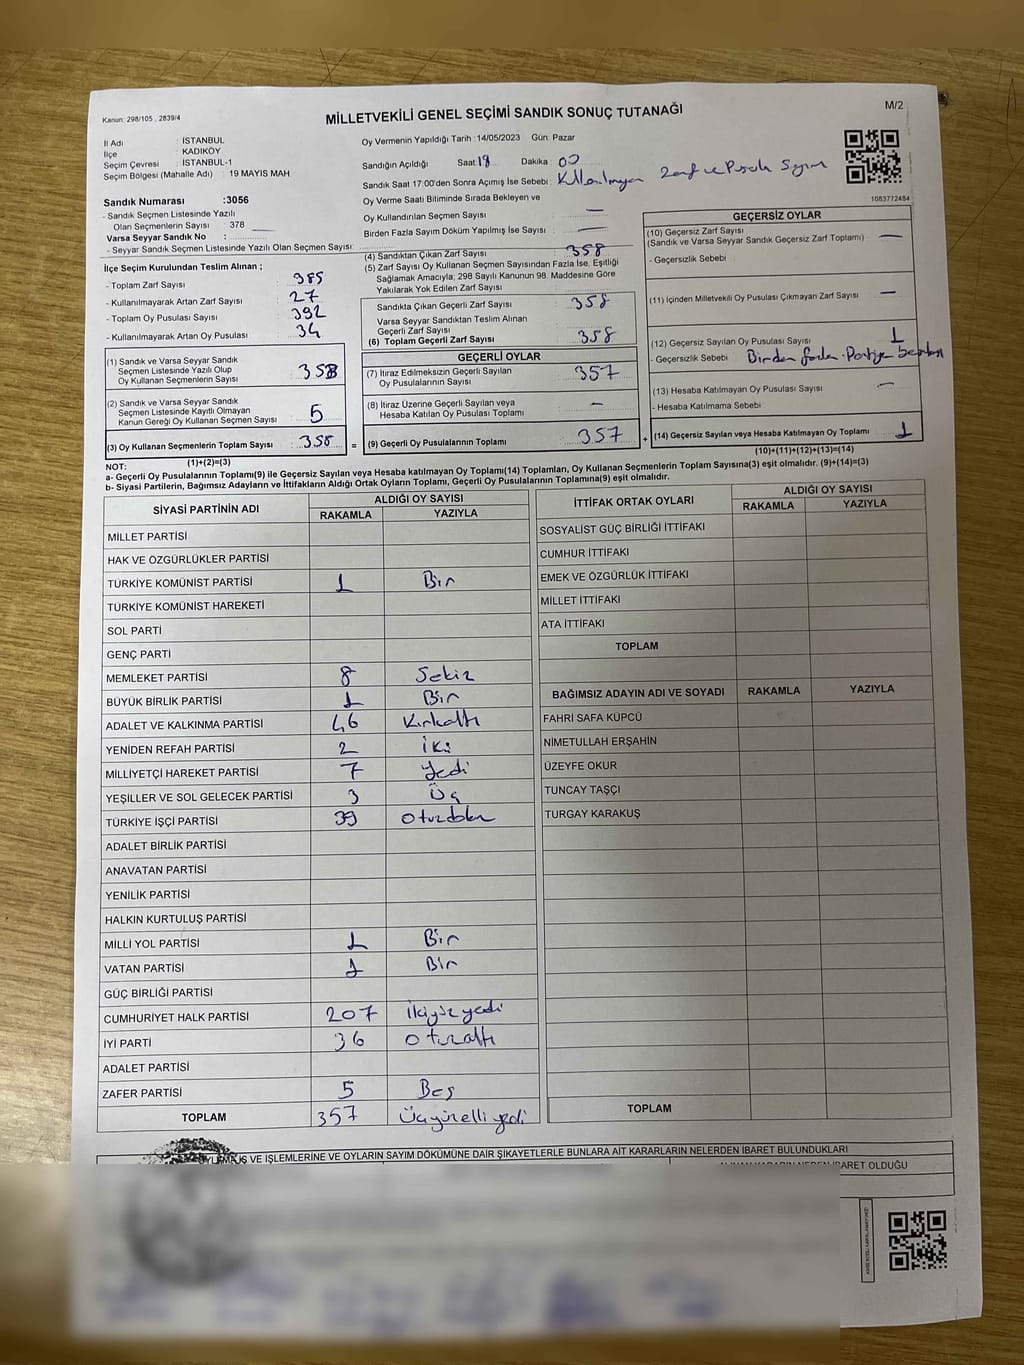 Kanun: 298/105 , 2839/4
MİLLETVEKİLİ GENEL SEÇİMİ SANDIK SONUÇ TUTANAĞI
M/2
İl Adı : İSTANBUL
İlçe : KADIKÖY
Seçim Çevresi : İSTANBUL-1
Seçim Bölgesi (Mahalle Adı) : 19 MAYIS MAH
Oy Vermenin Yapıldığı Tarih :14/05/2023 Gün: Pazar
Sandığın Açıldığı Saat 18 Dakika : 00
Sandık Saat 17:00'den Sonra Açımış İse Sebebi : Kullanılmayan Zarf ve Pusula Sayım
1083772484
Sandık Numarası :3056
- Sandık Seçmen Listesinde Yazılı
Olan Seçmenlerin Sayısı 378
Varsa Seyyar Sandık No :
- Seyyar Sandık Seçmen Listesinde Yazılı Olan Seçmen Sayısı :
Oy Verme Saati Bitiminde Sırada Bekleyen ve
Oy Kullandırılan Seçmen Sayısı : —
Birden Fazla Sayım Döküm Yapılmış İse Sayısı : —
İlçe Seçim Kurulundan Teslim Alınan ;
- Toplam Zarf Sayısı : 385
- Kullanılmayarak Artan Zarf Sayısı : 27
- Toplam Oy Pusulası Sayısı : 392
- Kullanılmayarak Artan Oy Pusulası : 34
(1) Sandık ve Varsa Seyyar Sandık
Seçmen Listesinde Yazılı Olup
Oy Kullanan Seçmenlerin Sayısı : 353
(2) Sandık ve Varsa Seyyar Sandık
Seçmen Listesinde Kayıtlı Olmayan
Kanun Gereği Oy Kullanan Seçmen Sayısı : 5
(3) Oy Kullanan Seçmenlerin Toplam Sayısı : 358
(1)+(2)=(3)
(4) Sandıktan Çıkan Zarf Sayısı : 358
(5) Zarf Sayısı Oy Kullanan Seçmen Sayısından Fazla İse, Eşitliği
Sağlamak Amacıyla, 298 Sayılı Kanunun 98. Maddesine Göre
Yakılarak Yok Edilen Zarf Sayısı :
Sandıkta Çıkan Geçerli Zarf Sayısı : 358
Varsa Seyyar Sandıktan Teslim Alınan
Geçerli Zarf Sayısı :
(6) Toplam Geçerli Zarf Sayısı : 358
GEÇERLİ OYLAR
(7) İtiraz Edilmeksizin Geçerli Sayılan
Oy Pusulalarının Sayısı : 357
(8) İtiraz Üzerine Geçerli Sayılan veya
Hesaba Katılan Oy Pusulası Toplamı : —
= (9) Geçerli Oy Pusulalarının Toplamı : 357 +
GEÇERSİZ OYLAR
(10) Geçersiz Zarf Sayısı : —
(Sandık ve Varsa Seyyar Sandık Geçersiz Zarf Toplamı)
- Geçersizlik Sebebi
(11) İçinden Milletvekili Oy Pusulası Çıkmayan Zarf Sayısı : —
(12) Geçersiz Sayılan Oy Pusulası Sayısı : 1
- Geçersizlik Sebebi Birden fazla Partiye
(13) Hesaba Katılmayan Oy Pusulası Sayısı : —
- Hesaba Katılmama Sebebi
(14) Geçersiz Sayılan veya Hesaba Katılmayan Oy Toplamı : 1
(10)+(11)+(12)+(13)=(14)
NOT:
a- Geçerli Oy Pusulalarının Toplamı(9) ile Geçersiz Sayılan veya Hesaba katılmayan Oy Toplamı(14) Toplamları, Oy Kullanan Seçmenlerin Toplam Sayısına(3) eşit olmalıdır. (9)+(14)=(3)
b- Siyasi Partilerin, Bağımsız Adayların ve İttifakların Aldığı Ortak Oyların Toplamı, Geçerli Oy Pusulalarının Toplamına(9) eşit olmalıdır.
SİYASİ PARTİNİN ADI ALDIĞI OY SAYISI
RAKAMLA YAZIYLA
MİLLET PARTİSİ
HAK VE ÖZGÜRLÜKLER PARTİSİ
TÜRKİYE KOMÜNİST PARTİSİ 1 Bir
TÜRKİYE KOMÜNİST HAREKETİ
SOL PARTİ
GENÇ PARTİ
MEMLEKET PARTİSİ 8 Sekiz
BÜYÜK BİRLİK PARTİSİ 1 Bir
ADALET VE KALKINMA PARTİSİ 46 Kırkaltı
YENİDEN REFAH PARTİSİ 2 İki
MİLLİYETÇİ HAREKET PARTİSİ 7 Yedi
YEŞİLLER VE SOL GELECEK PARTİSİ 3 Üç
TÜRKİYE İŞÇİ PARTİSİ 39 Otuzdokuz
ADALET BİRLİK PARTİSİ
ANAVATAN PARTİSİ
YENİLİK PARTİSİ
HALKIN KURTULUŞ PARTİSİ
MİLLİ YOL PARTİSİ 1 Bir
VATAN PARTİSİ 1 Bir
GÜÇ BİRLİĞİ PARTİSİ
CUMHURİYET HALK PARTİSİ 207 İkiyüzyedi
İYİ PARTİ 36 Otuzaltı
ADALET PARTİSİ
ZAFER PARTİSİ 5 Beş
TOPLAM 357 Üçyüzelliyedi
İTTİFAK ORTAK OYLARI ALDIĞI OY SAYISI
RAKAMLA YAZIYLA
SOSYALİST GÜÇ BİRLİĞİ İTTİFAKI
CUMHUR İTTİFAKI
EMEK VE ÖZGÜRLÜK İTTİFAKI
MİLLET İTTİFAKI
ATA İTTİFAKI
TOPLAM
BAĞIMSIZ ADAYIN ADI VE SOYADI RAKAMLA YAZIYLA
FAHRİ SAFA KÜPCÜ
NİMETULLAH ERŞAHİN
ÜZEYFE OKUR
TUNCAY TAŞÇI
TURGAY KARAKUŞ
TOPLAM
VE İŞLEMLERİNE VE OYLARIN SAYIM DÖKÜMÜNE DAİR ŞİKAYETLERLE BUNLARA AİT KARARLARIN NELERDEN İBARET BULUNDUKLARI
İBARET OLDUĞU